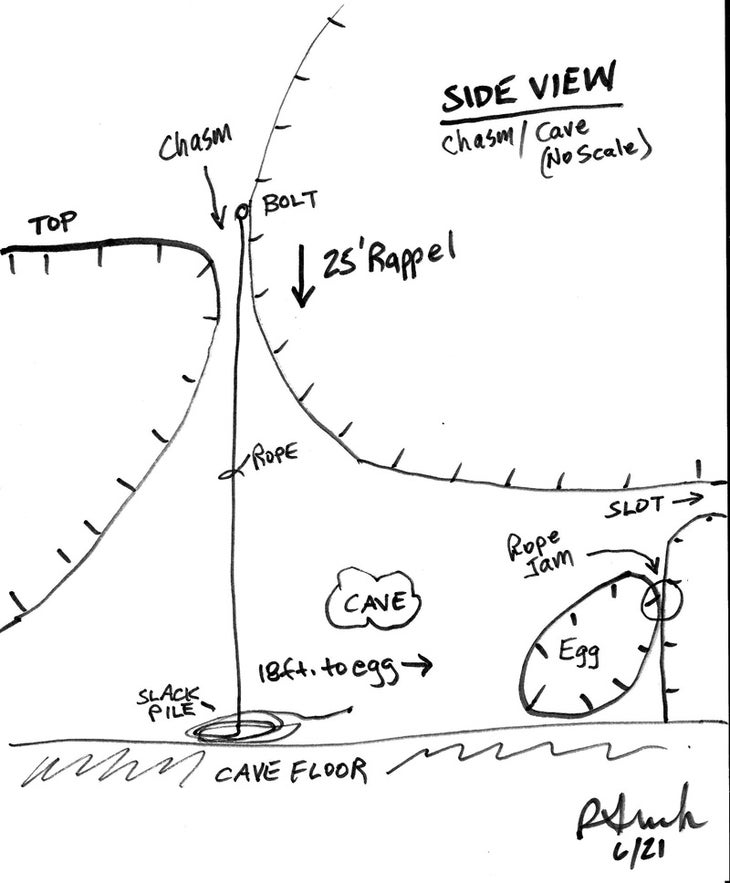 SIDE VIEW
Chasm/Cave
(No Scale)
Chasm
BOLT
TOP
25' Rappel
ROPE
SLOT →
Rope
Jam
CAVE
Egg
18ft. to egg →
SLACK
PILE
CAVE FLOOR
6/21